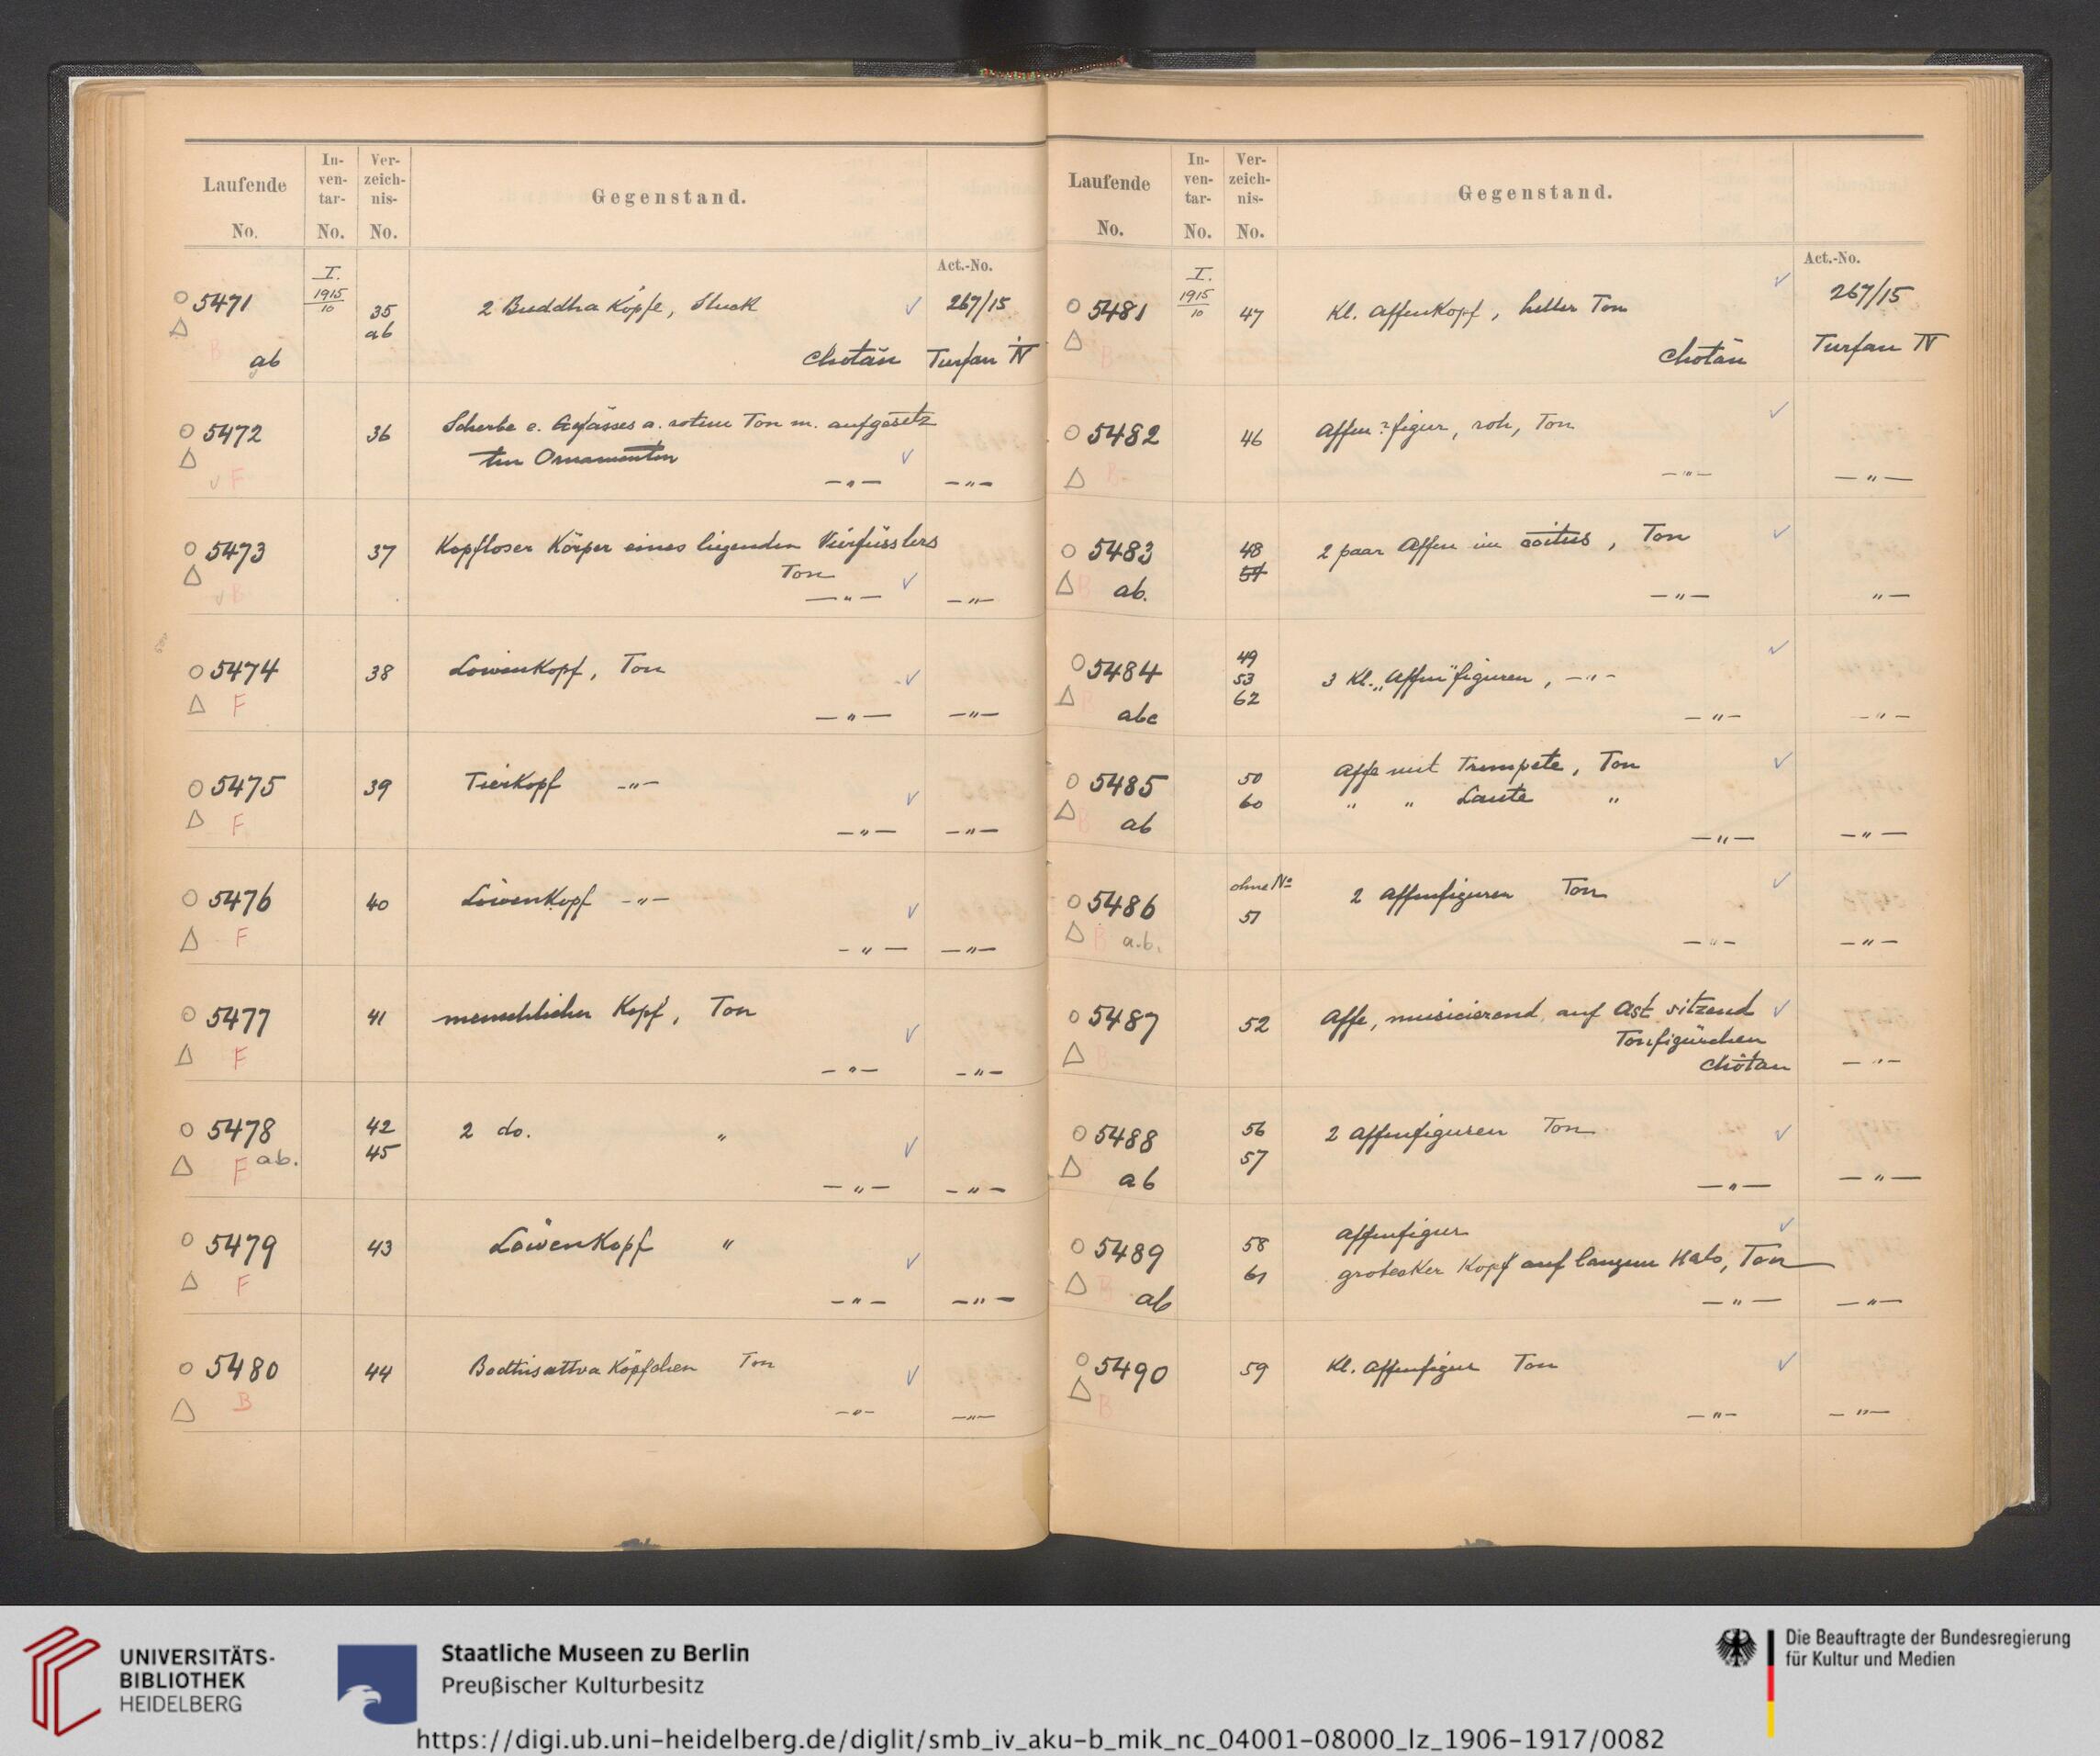 Laufende No.
In-ven-tar-No.
Ver-zeich-nis-No.
Gegenstand.
Act.-No.
○ 5471 I. 1915/10 35 2 Buddha Köpfe, Stuck ✓ 267/15
△ B ab ab Chotän Turfan IV
○ 5472 36 Scherbe e. Gefässes a. rotem Ton m. aufgesetz
△ ✓ F ten Ornamenten ✓
—"— —"—
○ 5473 37 Kopfloser Körper eines liegenden Vierfüsslers
△ ✓ B Ton ✓
—"— —"—
○ 5474 38 Löwenkopf, Ton ✓
△ F —"— —"—
○ 5475 39 Tierkopf —"— ✓
△ F —"— —"—
○ 5476 40 Löwenkopf —"— ✓
△ F —"— —"—
○ 5477 41 menschlicher Kopf, Ton ✓
△ F —"— —"—
○ 5478 42 2 do. " ✓
△ F ab. 45
—"— —"—
○ 5479 43 Löwenkopf " ✓
△ F —"— —"—
○ 5480 44 Bodhisattva Köpfchen Ton ✓
△ B —"— —"—
Laufende No.
In-ven-tar-No.
Ver-zeich-nis-No.
Gegenstand.
Act.-No.
○ 5481 I. 1915/10 47 Kl. Affenkopf, heller Ton ✓ 267/15
△ B Chotän Turfan IV
○ 5482 46 Affen?figur, roh, Ton ✓
△ B —"— —"—
○ 5483 48 2 paar Affen im coitus, Ton ✓
△ B ab. 54
—"— "—
○ 5484 49 53 62 3 Kl. „Affen"figuren, —"— ✓
△ abc —"— —"—
○ 5485 50 Affe mit Trompete, Ton ✓
60 " " Laute "
△ B ab —"— —"—
○ 5486 ohne No 51 2 Affenfiguren Ton ✓
△ B a.b. —"— —"—
○ 5487 52 Affe, musicierend, auf Ast sitzend ✓
△ B Tonfigürchen
Chotän —"—
○ 5488 56 2 Affenfiguren Ton ✓
57
△ ab —"— —"—
○ 5489 58 Affenfigur ✓
61 grotesker Kopf auf langem Hals, Ton
△ B ab —"— —"—
○ 5490 59 Kl. Affenfigur Ton ✓
△ B —"— —"—
UNIVERSITÄTS-
BIBLIOTHEK
HEIDELBERG
Staatliche Museen zu Berlin
Preußischer Kulturbesitz
Die Beauftragte der Bundesregierung
für Kultur und Medien
https://digi.ub.uni-heidelberg.de/diglit/smb_iv_aku-b_mik_nc_04001-08000_lz_1906-1917/0082